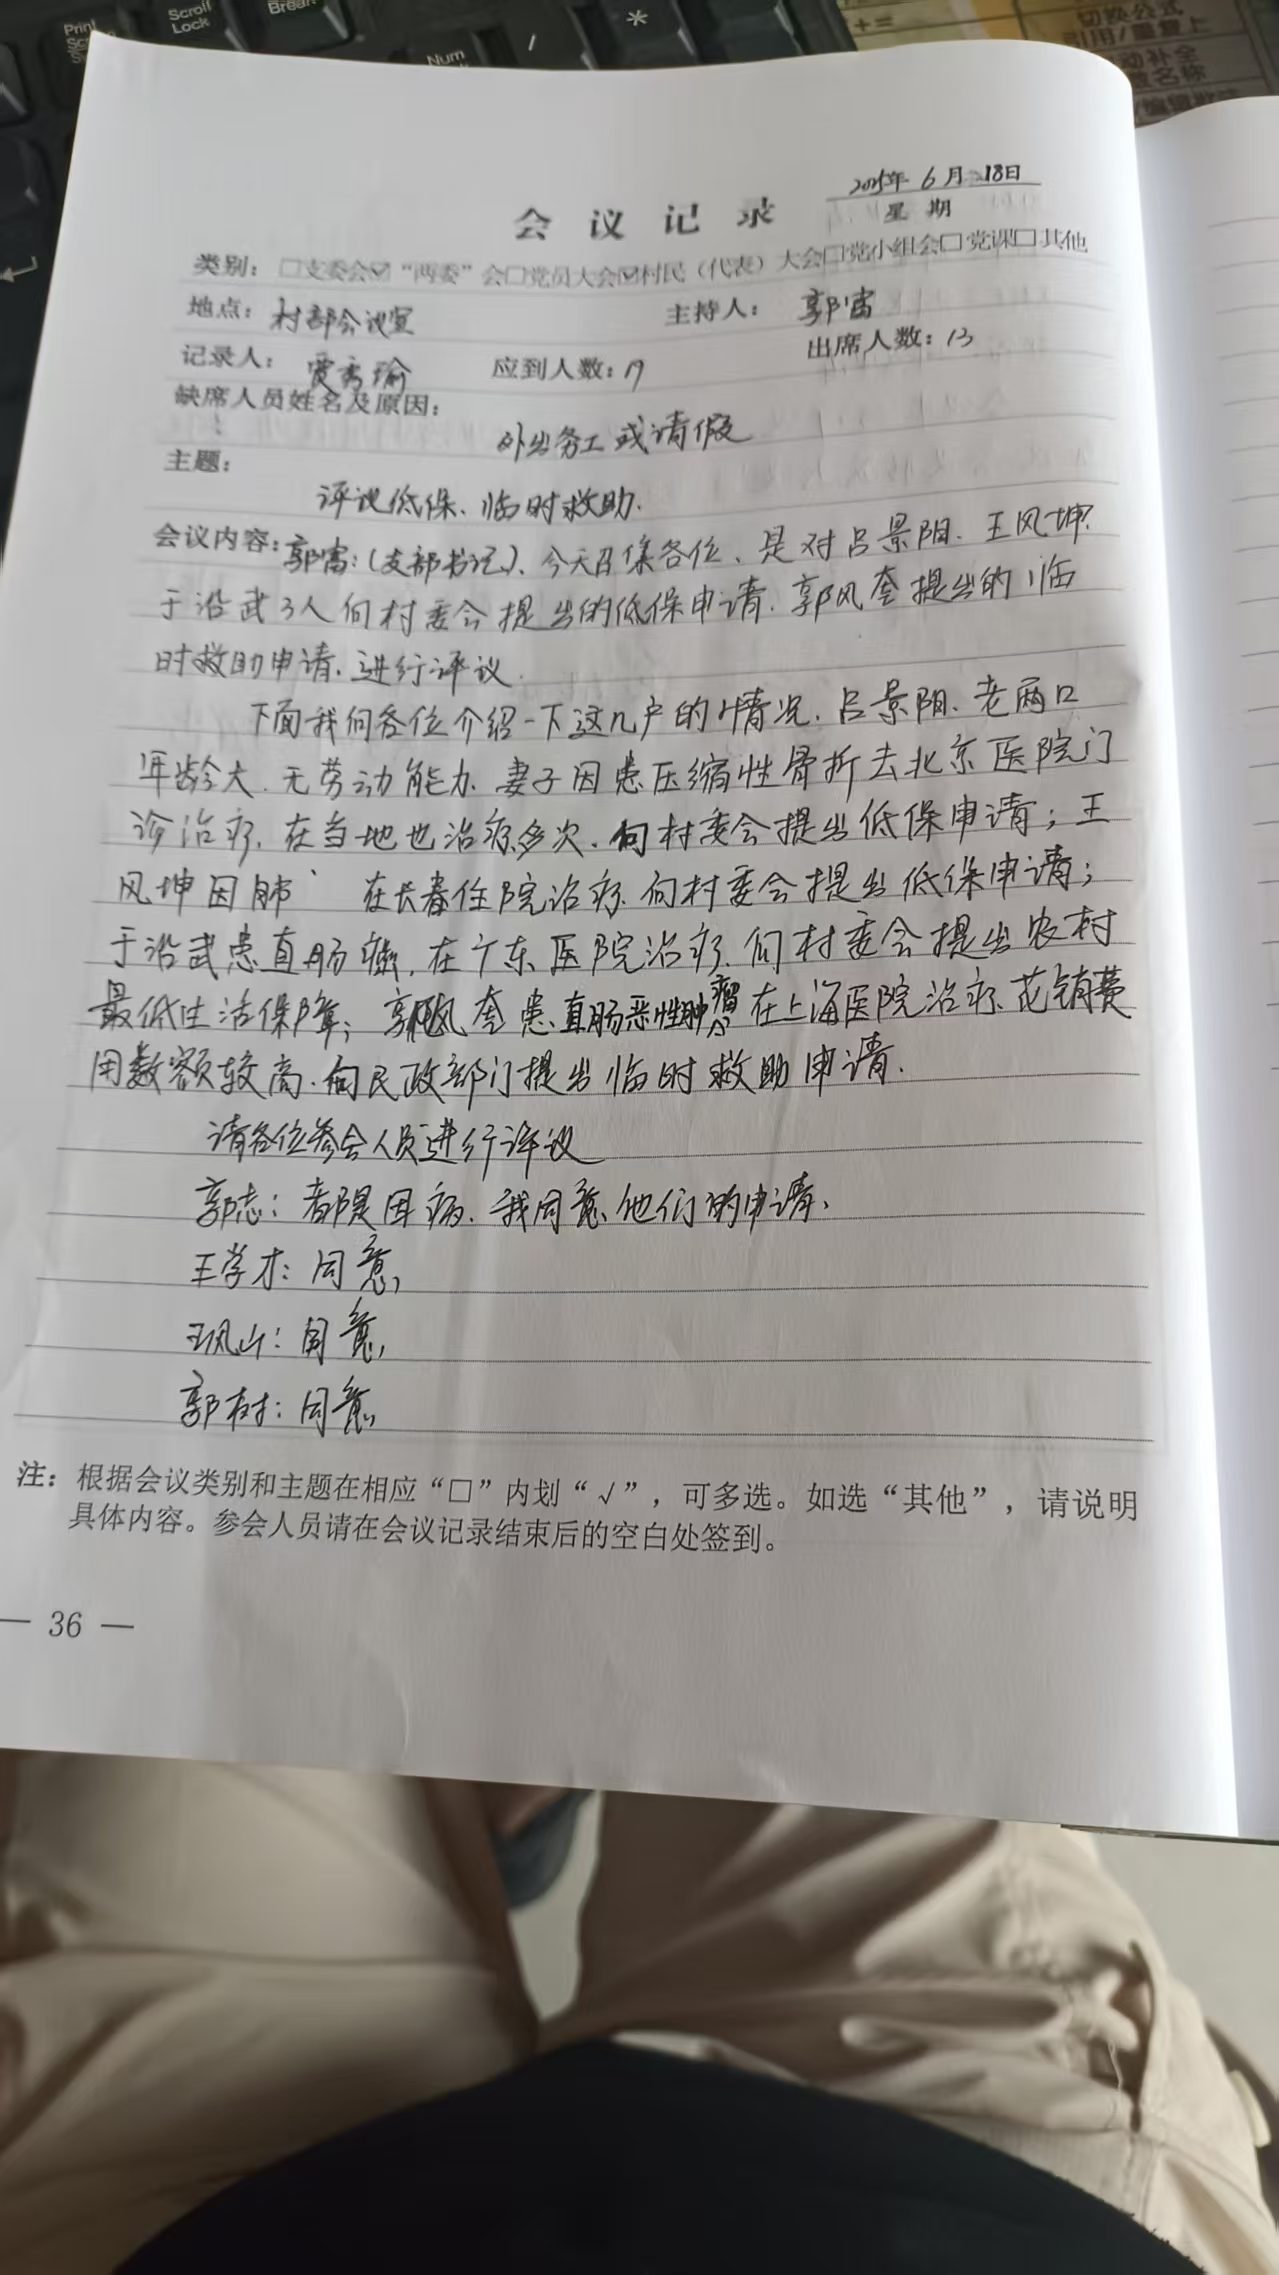 Scroll
Lock
Num
/
*
切换公式
引用/重复上
2025年6月18日
会议记录
星期
类别：□支委会☑“两委”会□党员大会☑村民（代表）大会□党小组会□党课□其他
地点：村部会议室 主持人：郭富
记录人：贾秀瑜 应到人数：17 出席人数：13
缺席人员姓名及原因：
外出务工或请假
主题：
评议低保、临时救助.
会议内容：郭富：（支部书记）、今天召集各位、是对吕景阳、王风坤、
于沿武3人向村委会提出的低保申请、郭风奎提出的临
时救助申请、进行评议.
下面我向各位介绍一下这几户的情况、吕景阳、老两口
年龄大、无劳动能力、妻子因患压缩性骨折去北京医院门
诊治疗、在当地也治疗多次、向村委会提出低保申请；王
风坤因肺 在长春住院治疗、向村委会提出低保申请；
于沿武患直肠癌，在广东医院治疗、向村委会提出农村
最低生活保障；郭风奎患直肠恶性肿瘤在上海医院治疗、花销费
用数额较高、向民政部门提出临时救助申请.
请各位参会人员进行评议
郭志：都是因病、我同意他们的申请、
王学才：同意、
王风山：同意、
郭树：同意、
注：根据会议类别和主题在相应“□”内划“√”，可多选。如选“其他”，请说明
具体内容。参会人员请在会议记录结束后的空白处签到。
— 36 —